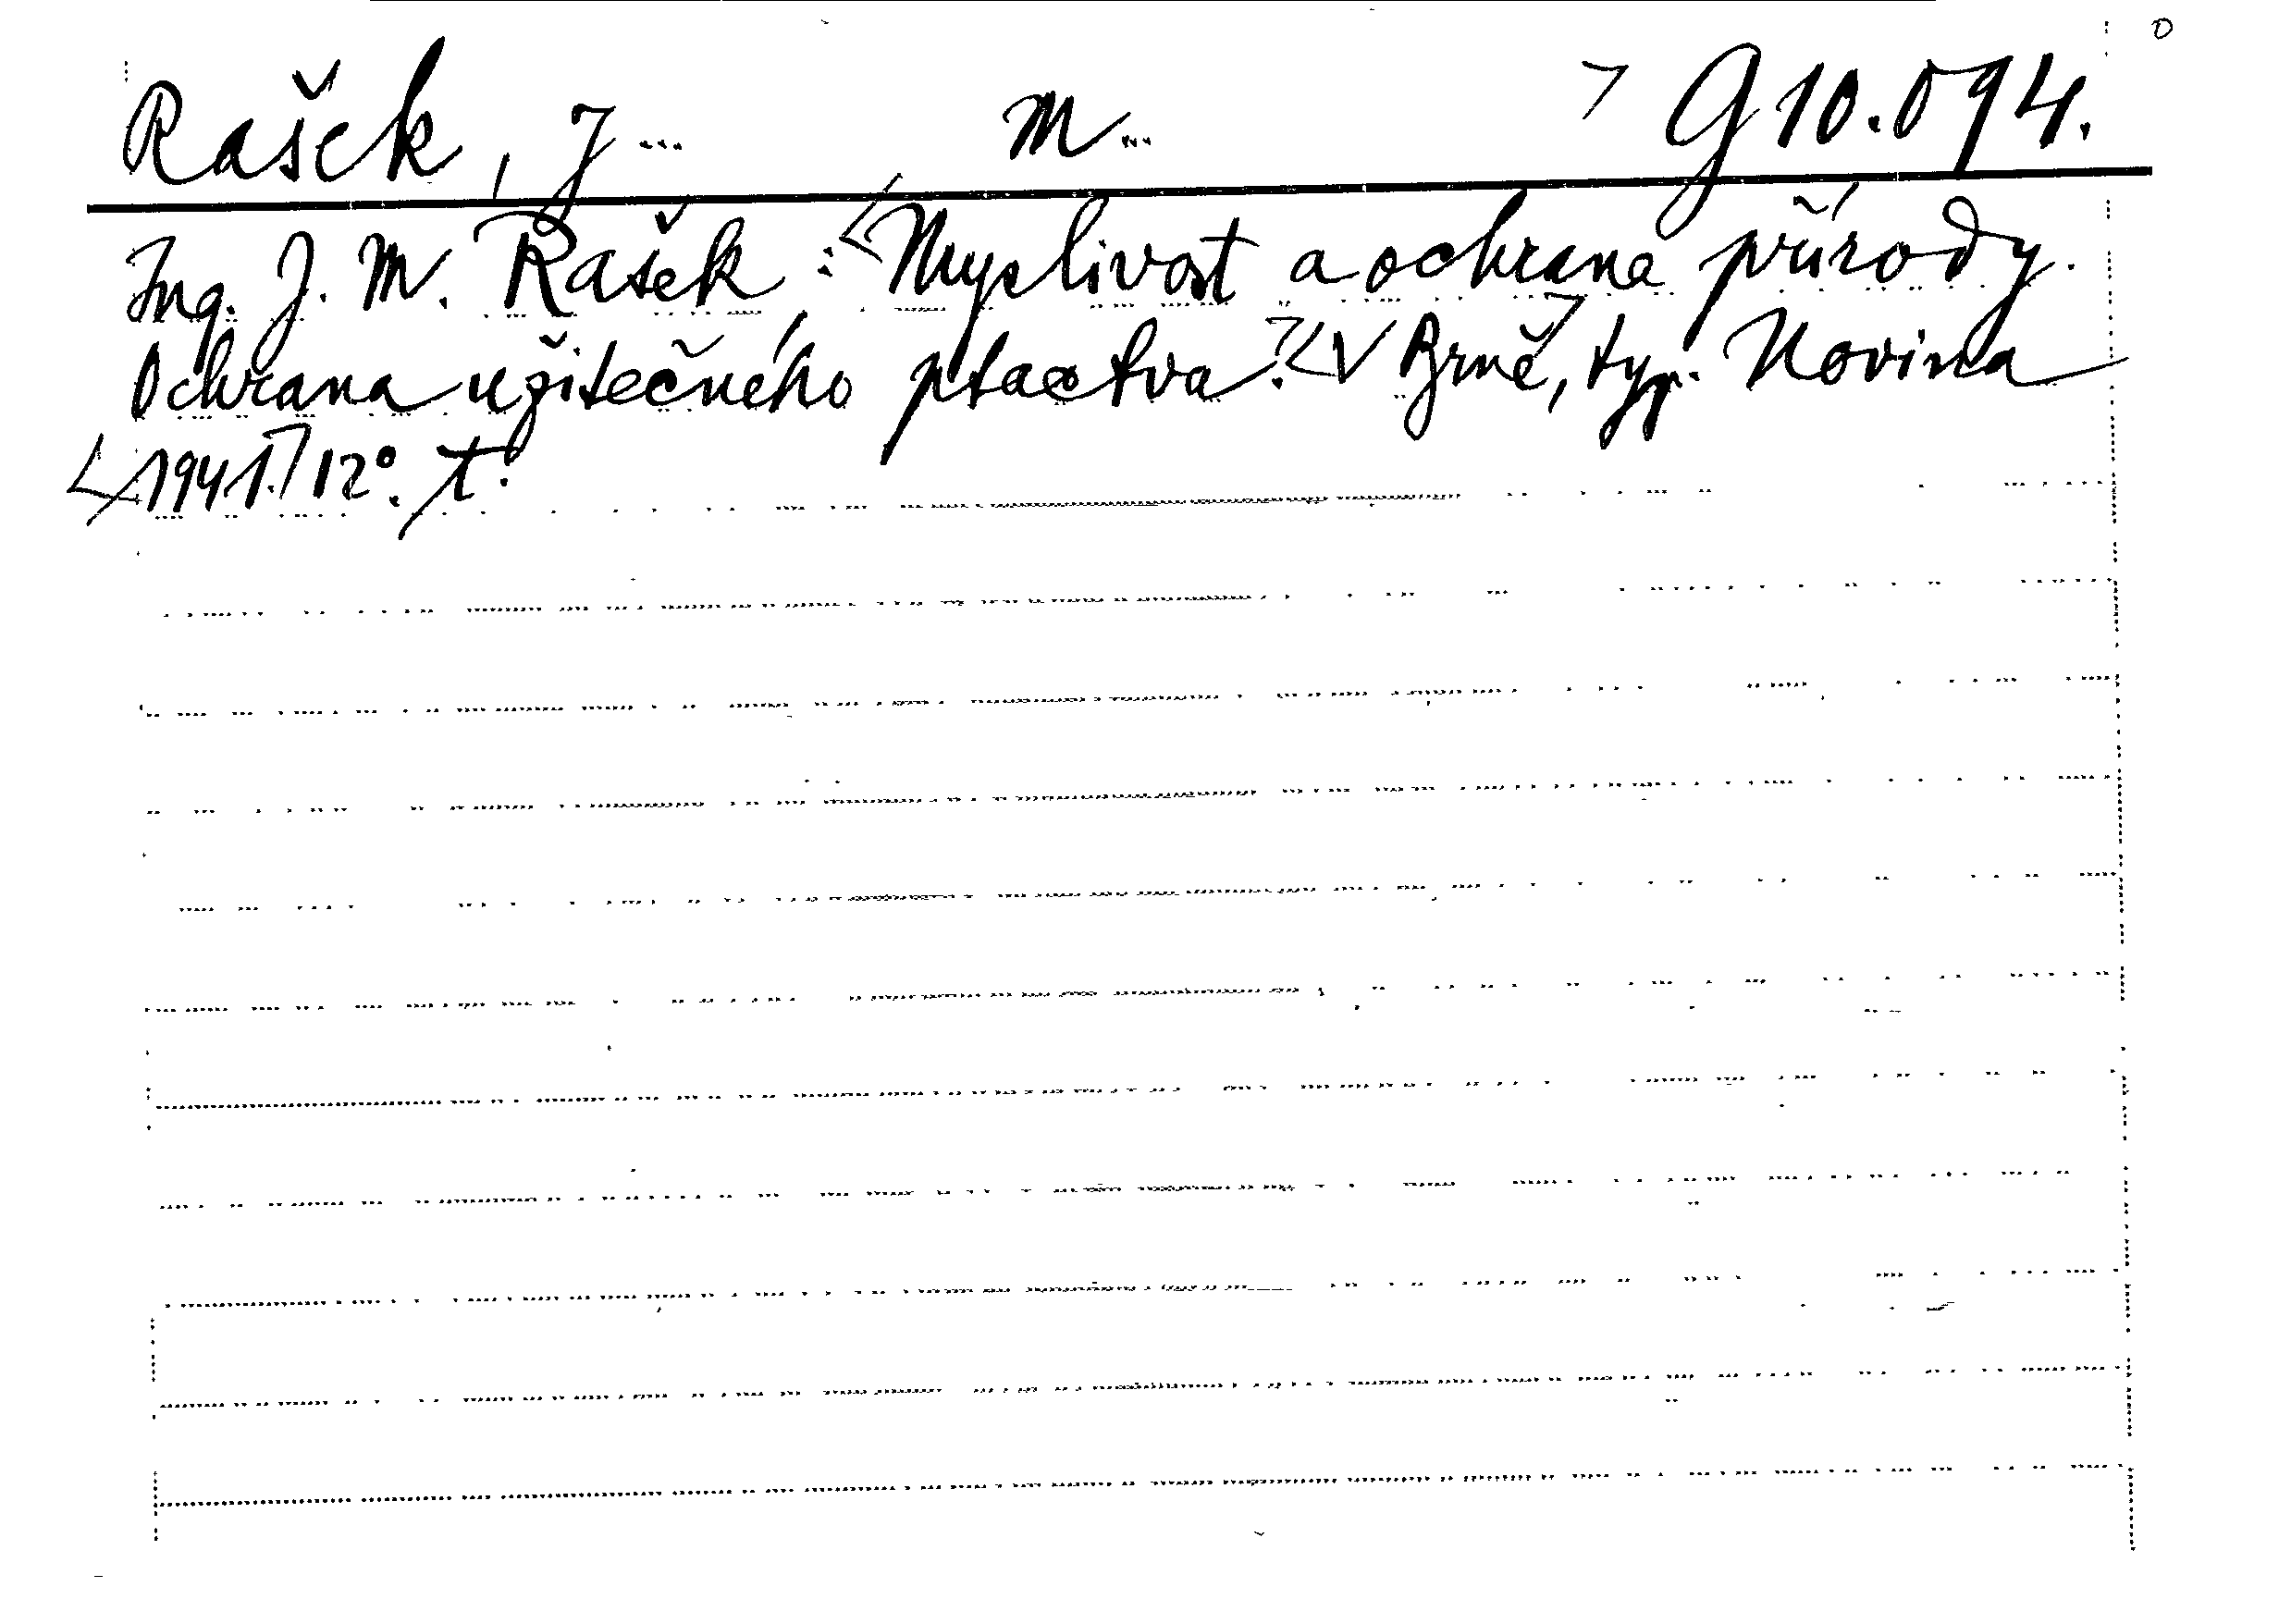 Rašek, J... M... G 10.094.
Ing. J. M. Rašek: Myslivost a ochrana přírody.
Ochrana užitečného ptactva. V Brně, typ. Novina
1941. 12°. t.